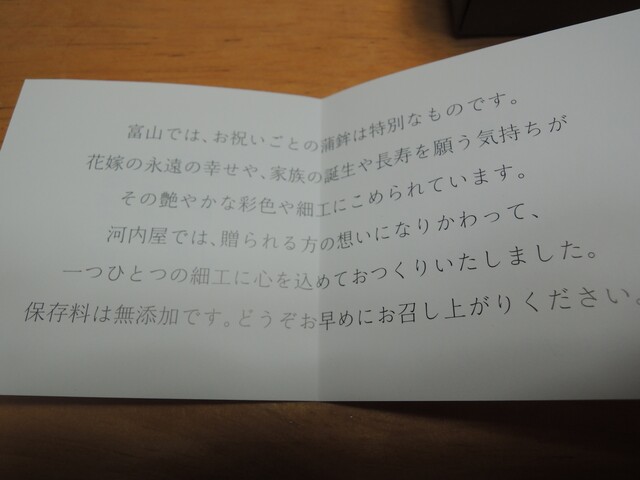 富山では、お祝いごとの蒲鉾は特別なものです。
花嫁の永遠の幸せや、家族の誕生や長寿を願う気持ちが
その艶やかな彩色や細工にこめられています。
河内屋では、贈られる方の想いになりかわって、
一つひとつの細工に心を込めておつくりいたしました。
保存料は無添加です。どうぞお早めにお召し上がりください。